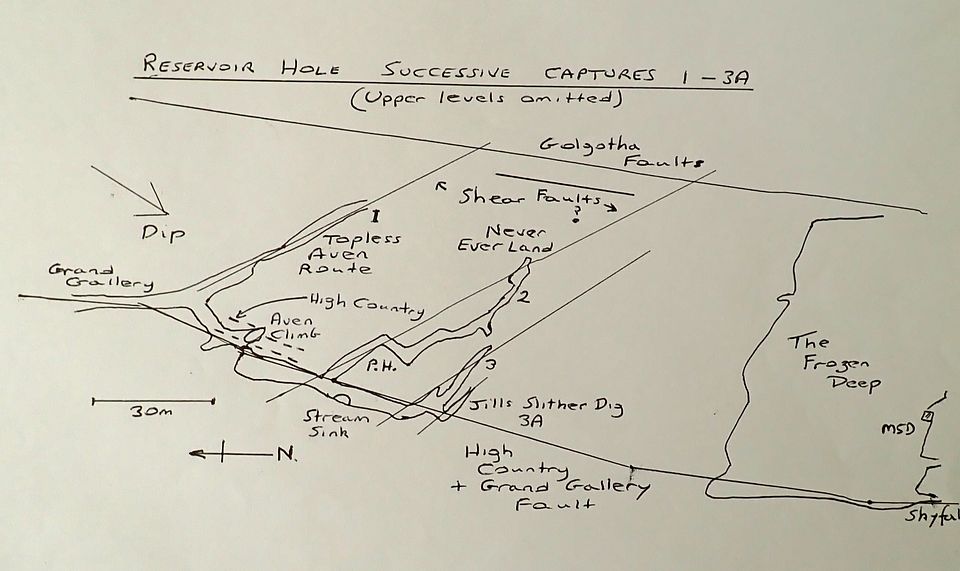 RESERVOIR HOLE SUCCESSIVE CAPTURES 1 - 3A
(Upper levels omitted)
Golgotha
Faults
Shear Faults
?
Dip
1
Topless
Aven
Route
Never
Ever Land
Grand
Gallery
High Country
2
Aven
Climb
The
Frozen
Deep
P.H.
3
30m
Stream
Sink
Jills Slither Dig
3A
MSD
N.
High
Country
+ Grand Gallery
Fault
Shyfal